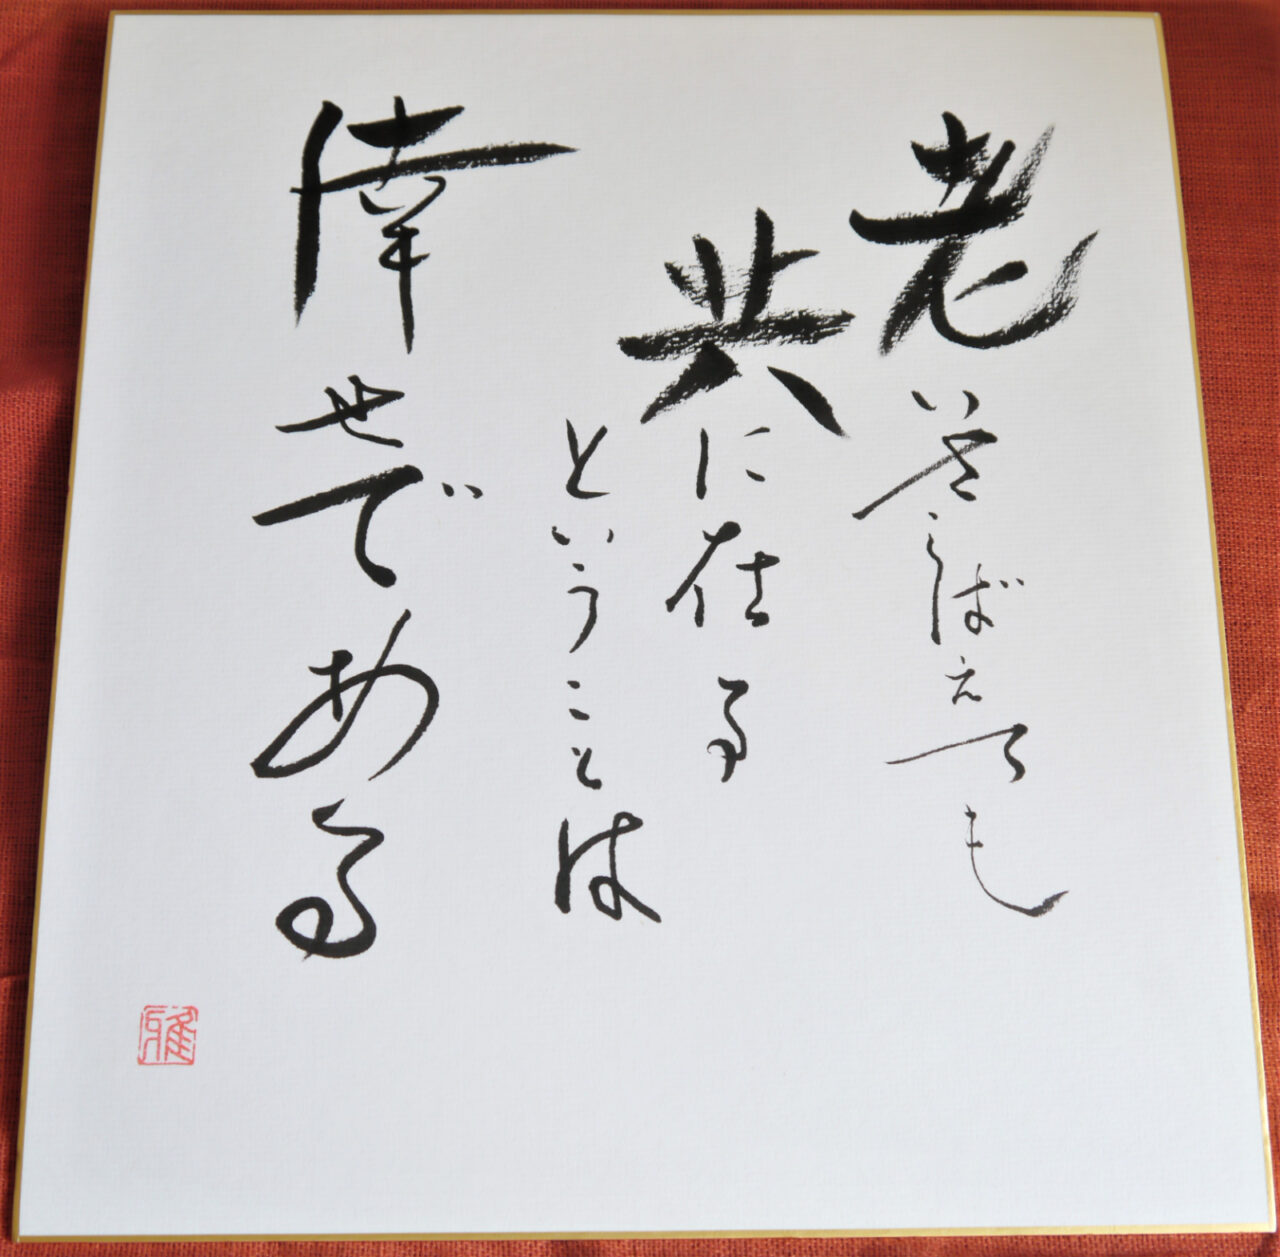 老いさらばえても
共に在る
ということは
倖せである
雅